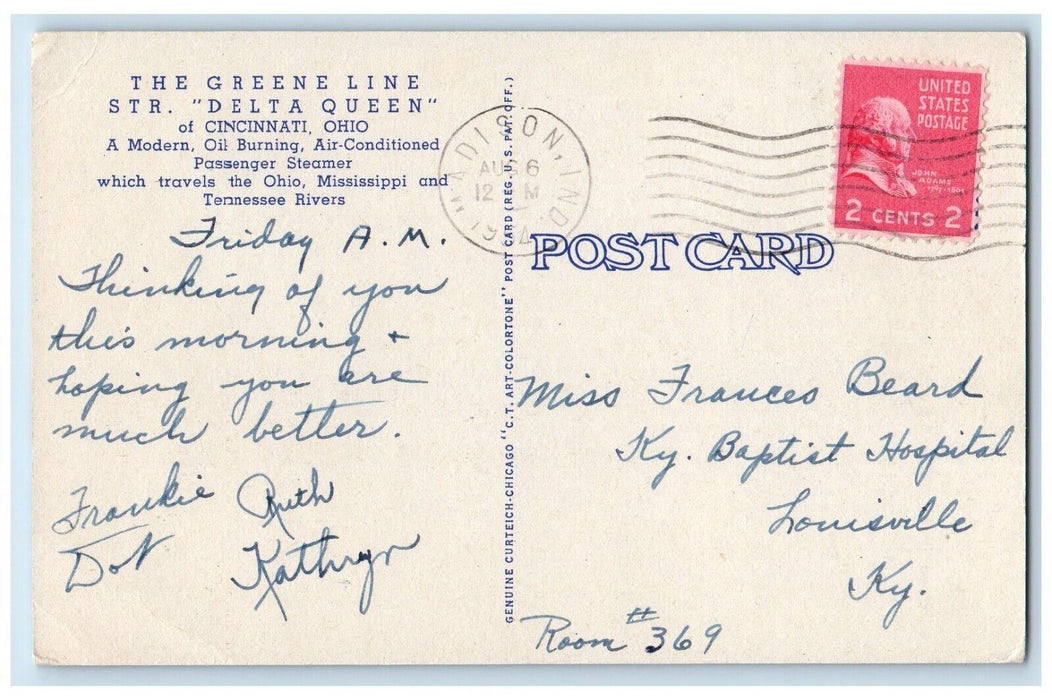 THE GREENE LINE
STR. "DELTA QUEEN"
of CINCINNATI, OHIO
A Modern, Oil Burning, Air-Conditioned
Passenger Steamer
which travels the Ohio, Mississippi and
Tennessee Rivers
Friday A.M.
Thinking of you
this morning +
hoping you are
much better.
Frankie Ruth
Dot Kathryn
GENUINE CURTEICH-CHICAGO "C.T. ART-COLORTONE" POST CARD (REG. U.S. PAT. OFF.)
MADISON, IND.
AUG 6
12 M
1954
UNITED
STATES
POSTAGE
JOHN
ADAMS
1797-1801
2 CENTS 2
POST CARD
Miss Frances Beard
Ky. Baptist Hospital
Louisville
Ky.
Room # 369